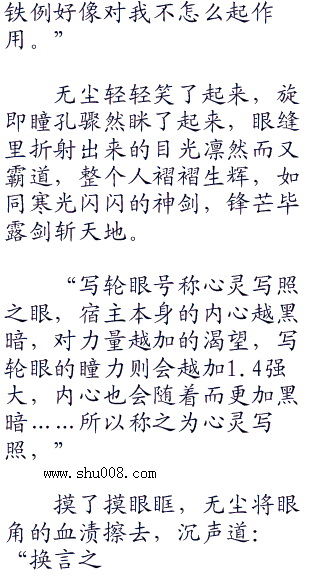 铁例好像对我不怎么起作
用。”
无尘轻轻笑了起来，旋
即瞳孔骤然眯了起来，眼缝
里折射出来的目光凛然而又
霸道，整个人褶褶生辉，如
同寒光闪闪的神剑，锋芒毕
露剑斩天地。
“写轮眼号称心灵写照
之眼，宿主本身的内心越黑
暗，对力量越加的渴望，写
轮眼的瞳力则会越加1.4强
大，内心也会随着而更加黑
暗……所以称之为心灵写
照，”
www.shu008.com
摸了摸眼眶，无尘将眼
角的血渍擦去，沉声道：
“换言之